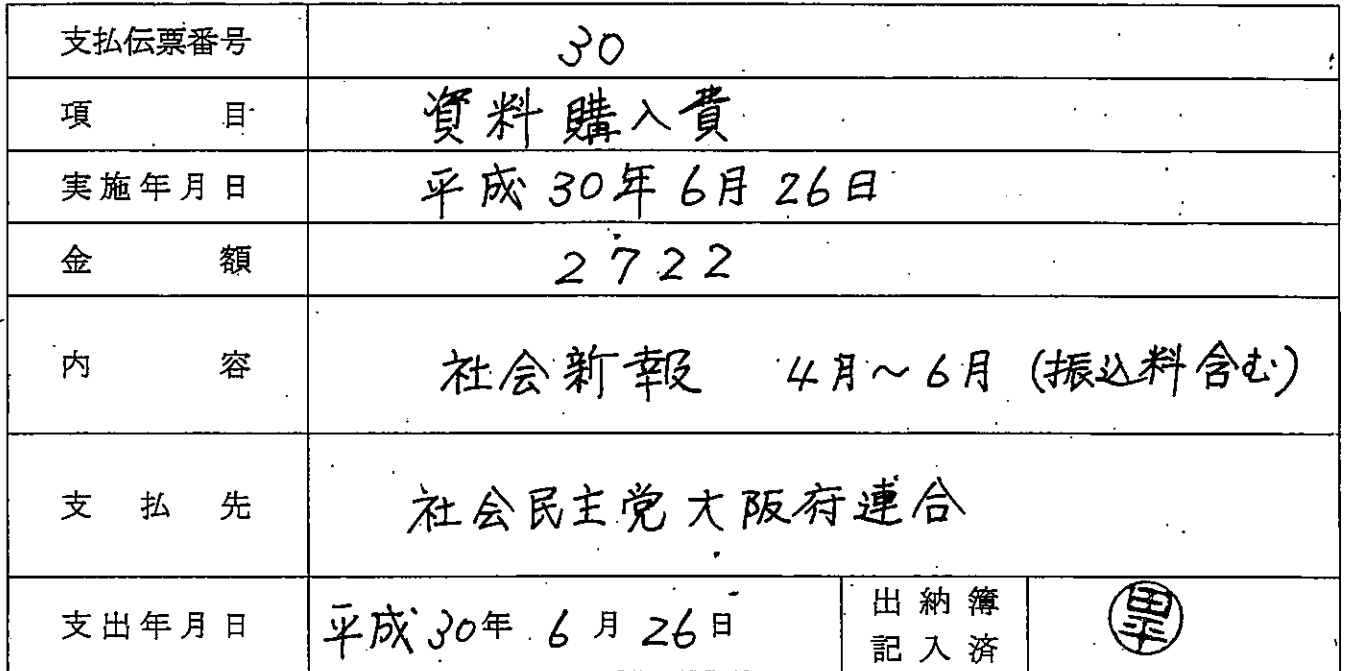 支払伝票番号 30
項目 資料購入費
実施年月日 平成30年6月26日
金額 2722
内容 社会新報 4月~6月 (振込料含む)
支払先 社会民主党大阪府連合
支出年月日 平成30年6月26日 出納簿
記入済